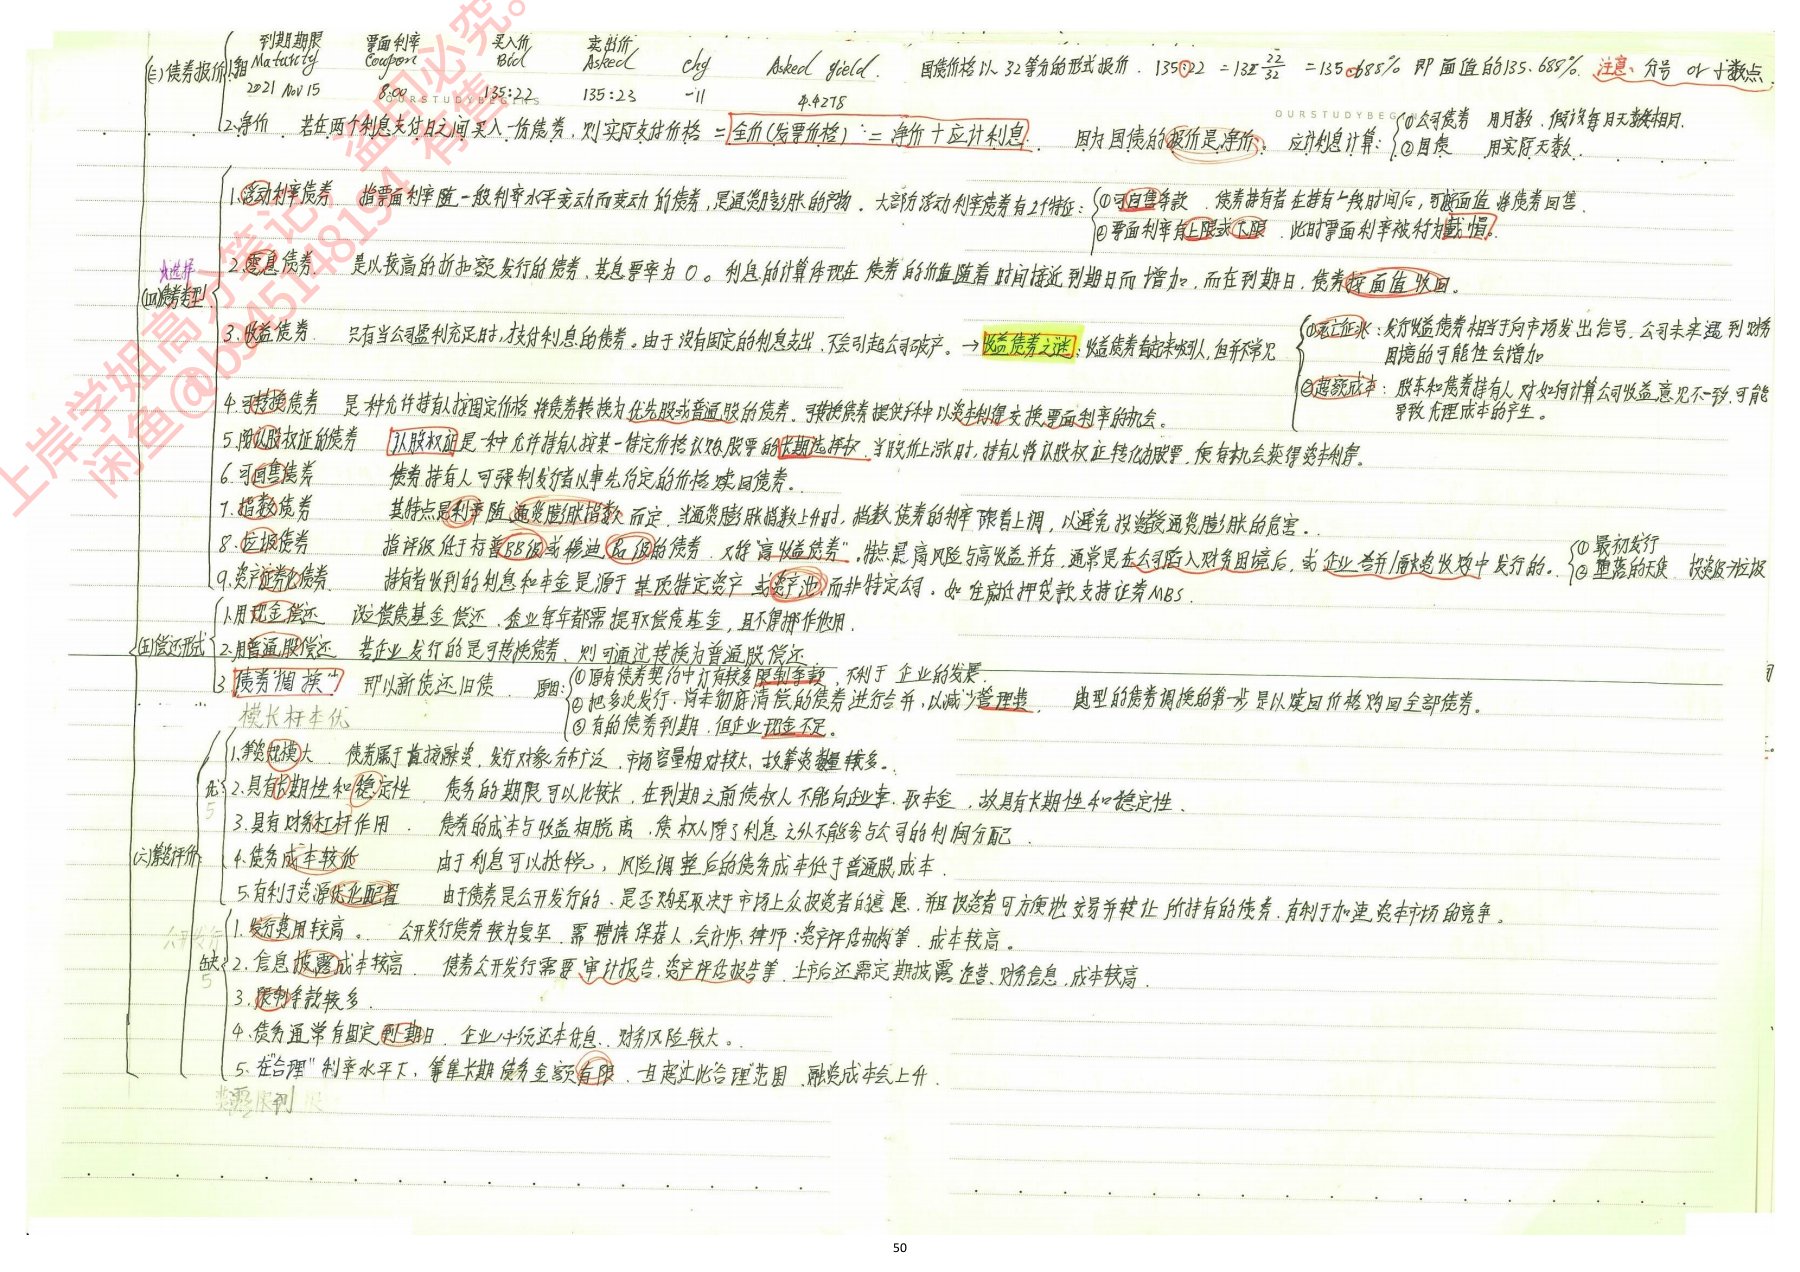 到期期限 票面利率 买入价 卖出价
(三)债券报价 1.报 Maturity Coupon Bid Asked chg Asked yield. 国债价格以32等分的形式报价. 135:22 =135 22/32 =135.685% 即面值的135.685%. 注意: 分号 or 小数点.
2021 Nov 15 8.00 135:22 135:23 -11 4.4278
OURSTUDYBEGINS
OURSTUDYBEGIN
2.净价 若在两个利息支付日之间买入一份债券,则实际支付价格 = 全价(发票价格) = 净价+应计利息. 因为国债的报价是净价. 应计利息计算: ①公司债券 用月数,假设每月天数相同.
②国债 用实际天数.
(四)债券类型
1.浮动利率债券 指票面利率随一般利率水平变动而变动的债券,是通货膨胀的产物. 大部分浮动利率债券有2个特征: ①可回售条款 . 债券持有者在持有一段时间后,可按面值将债券回售.
②票面利率有上限或下限 . 此时票面利率被称为戴帽.
2.零息债券. 是以较高的折扣额发行的债券,其息票率为0。利息的计算体现在债券的价值随着时间接近到期日而增加,而在到期日,债券按面值收回。
3.收益债券. 只有当公司盈利充足时,才支付利息的债券。由于没有固定的利息支出,不会引起公司破产。→收益债券之谜: 收益债券看起来吸引人,但并不常见
①死亡征兆:发行收益债券相当于向市场发出信号,公司未来遇到财务
困境的可能性会增加
②代理成本: 股东和债券持有人对如何计算公司收益意见不一致,可能
导致代理成本的产生。
4.可转换债券 是一种允许持有人按固定价格将债券转换为优先股或普通股的债券.可转换债券提供了一种以资本利得交换票面利率的机会。
5.附认股权证的债券 认股权证是一种允许持有人按某一特定价格认购股票的长期选择权.当股价上涨时,持有人将认股权证转化为股票,便有机会获得资本利得。
6.可回售债券 债券持有人可强制发行者以事先约定的价格赎回债券。
7.指数债券 其特点是利率随通货膨胀指数而定,当通货膨胀指数上升时,指数债券的利率跟着上调,以避免投资者受通货膨胀的危害。
8.垃圾债券 指评级低于标普BB级或穆迪Ba级的债券 又称"高收益债券".特点是高风险与高收益并存,通常是在公司陷入财务困境后,或企业合并/杠杆收购中发行的。 ①最初发行
②堕落的天使 投资级→垃圾
9.资产证券化债券. 持有者收到的利息和本金是源于某项特定资产或资产池,而非特定公司. 如住宅抵押贷款支持证券MBS.
(五)偿还形式
1.用现金偿还 设立偿债基金偿还.企业每年都需提取偿债基金,且不得挪作他用.
2.用普通股偿还 若企业发行的是可转换债券,则可通过转换为普通股偿还
3 债券"调换" 即以新债还旧债. 原因: ①原有债券契约中订有较多限制条款,不利于企业的发展.
②把多次发行、尚未彻底清偿的债券进行合并,以减少管理费. 典型的债券调换的第一步是以赎回价格购回全部债券。
③有的债券到期,但企业现金不足。
模长杆本优
(六)筹资评价
优5
1.筹资规模大. 债券属于直接融资,发行对象分布广泛,市场容量相对较大,故筹资数量较多。
2.具有长期性和稳定性. 债务的期限可以比较长,在到期之前债权人不能向企业索取本金,故具有长期性和稳定性.
3.具有财务杠杆作用. 债券的成本与收益相脱离,债权人除了利息之外不能参与公司的利润分配.
4.债务成本较低 由于利息可以抵税,风险调整后的债务成本低于普通股成本.
5.有利于资源优化配置 由于债券是公开发行的、是否购买取决于市场上众投资者的意愿,并且投资者可方便地交易并转让所持有的债券,有利于加速资本市场的竞争。
公开发行
缺5
1.发行费用较高。 公开发行债券较为复杂,需聘请保荐人,会计师,律师,资产评估机构等,成本较高。
2.信息披露成本较高 债券公开发行需要审计报告、资产评估报告等,上市后还需定期披露运营、财务信息,成本较高.
3.限制条款较多.
4.债务通常有固定到期日 企业必须还本付息,财务风险较大。
5.在"合理"利率水平下,筹集长期债务金额有限,一旦超过此合理范围,融资成本会上升.
上岸学姐高分笔记,盗印必究。
闲鱼@by45148194 有售
50